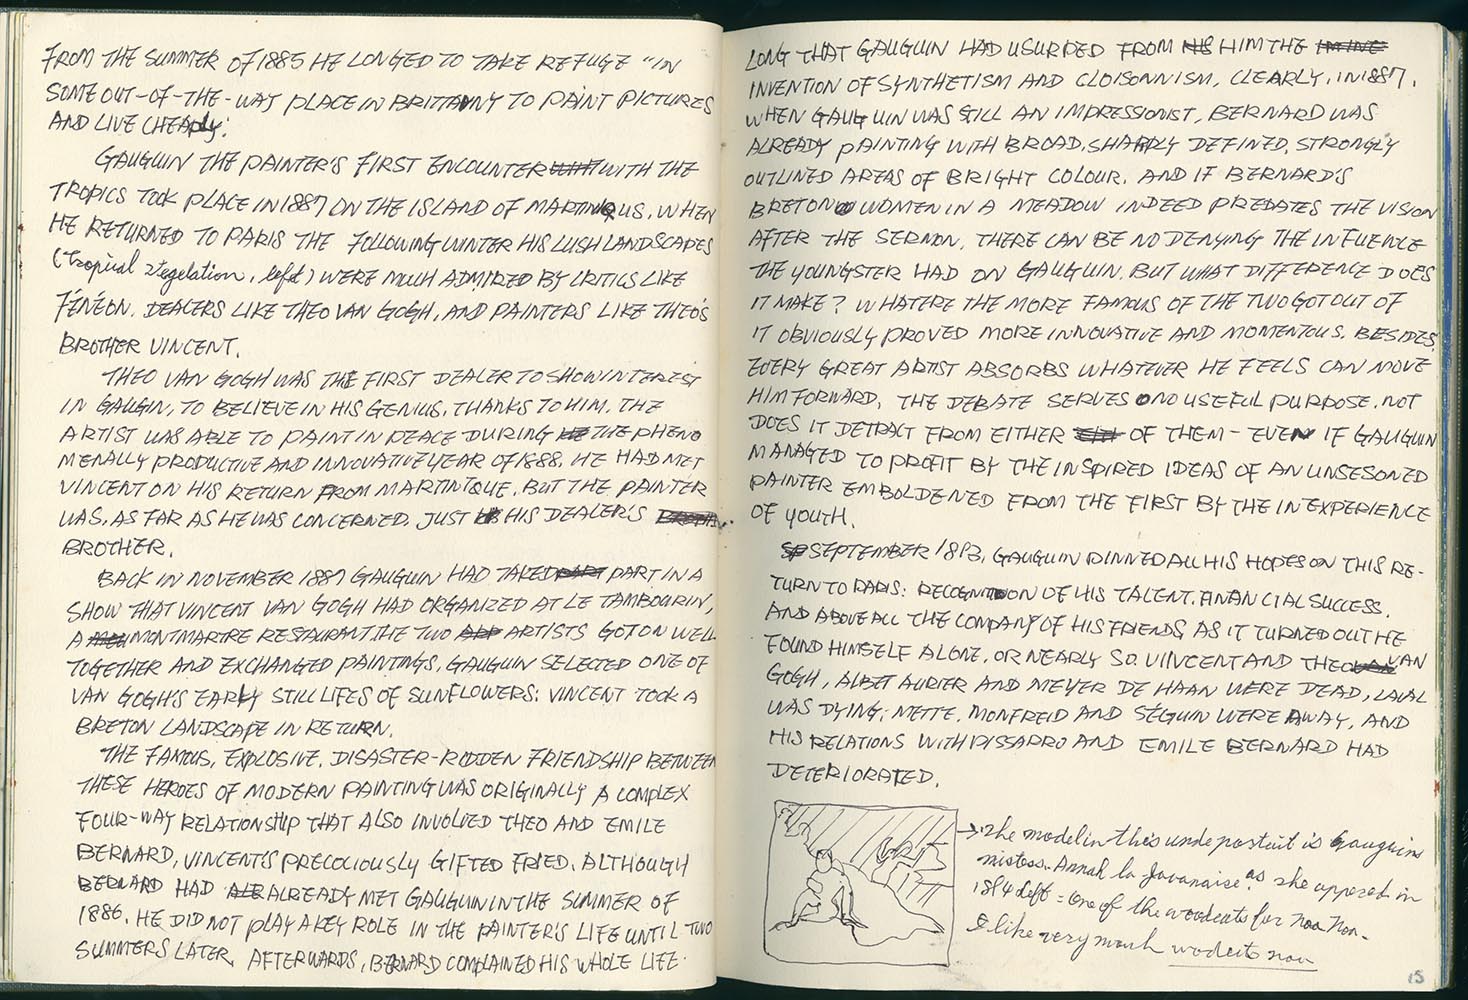 FROM THE SUMMER OF 1885 HE LONGED TO TAKE REFUGE "IN
SOME OUT-OF-THE-WAY PLACE IN BRITTANY TO PAINT PICTURES
AND LIVE CHEAPLY.
GAUGUIN THE PAINTER'S FIRST ENCOUNTER WITH THE
TROPICS TOOK PLACE IN 1887 ON THE ISLAND OF MARTINIQUS. WHEN
HE RETURNED TO PARIS THE FOLLOWING WINTER HIS LUSH LANDSCAPES
(Tropical vegelation, left) WERE MUCH ADMIRED BY CRITICS LIKE
FÉNÉON. DEALERS LIKE THEO VAN GOGH, AND PAINTERS LIKE THEO'S
BROTHER VINCENT.
THEO VAN GOGH WAS THE FIRST DEALER TO SHOW INTEREST
IN GAUGIN, TO BELIEVE IN HIS GENIUS. THANKS TO HIM. THE
ARTIST WAS ABLE TO PAINT IN PEACE DURING THE PHENO
MENALLY PRODUCTIVE AND INNOVATIVE YEAR OF 1888. HE HAD MET
VINCENT ON HIS RETURN FROM MARTINIQUE. BUT THE PAINTER
WAS, AS FAR AS HE WAS CONCERNED, JUST HIS DEALER'S
BROTHER.
BACK IN NOVEMBER 1887 GAUGUIN HAD TAKED PART IN A
SHOW THAT VINCENT VAN GOGH HAD ORGANIZED AT LE TAMBOURIN,
A MONTMARTRE RESTAURANT. THE TWO ARTISTS GOT ON WELL
TOGETHER AND EXCHANGED PAINTINGS, GAUGUIN SELECTED ONE OF
VAN GOGH'S EARLY STILL LIFES OF SUNFLOWERS: VINCENT TOOK A
BRETON LANDSCAPE IN RETURN.
THE FAMOUS, EXPLOSIVE, DISASTER-RIDDEN FRIENDSHIP BETWEEN
THESE HEROES OF MODERN PAINTING WAS ORIGINALLY A COMPLEX
FOUR-WAY RELATIONSHIP THAT ALSO INVOLVED THEO AND EMILE
BERNARD, VINCENT'S PRECOCIOUSLY GIFTED FRIED. ALTHOUGH
BERNARD HAD ALREADY MET GAUGUIN IN THE SUMMER OF
1886. HE DID NOT PLAY A KEY ROLE IN THE PAINTER'S LIFE UNTIL TWO
SUMMERS LATER. AFTERWARDS, BERNARD COMPLAINED HIS WHOLE LIFE
LONG THAT GAUGUIN HAD USURPED FROM HIM THE
INVENTION OF SYNTHETISM AND CLOISONNISM, CLEARLY, IN 1887.
WHEN GAUGUIN WAS STILL AN IMPRESSIONIST, BERNARD WAS
ALREADY PAINTING WITH BROAD, SHARPLY DEFINED, STRONGLY
OUTLINED AREAS OF BRIGHT COLOUR. AND IF BERNARD'S
BRETON WOMEN IN A MEADOW INDEED PREDATES THE VISION
AFTER THE SERMON, THERE CAN BE NO DENYING THE INFUENCE
THE YOUNGSTER HAD ON GAUGUIN. BUT WHAT DIFFERENCE DOES
IT MAKE? WHATERE THE MORE FAMOUS OF THE TWO GOT OUT OF
IT OBVIOUSLY PROVED MORE INNOVATIVE AND MOMENTOUS. BESIDES,
EVERY GREAT ARTIST ABSORBS WHATEVER HE FEELS CAN MOVE
HIM FORWARD. THE DEBATE SERVES NO USEFUL PURPOSE. NOT
DOES IT DETRACT FROM EITHER OF THEM - EVEN IF GAUGUIN
MANAGED TO PROFIT BY THE INSPIRED IDEAS OF AN UNSESONED
PAINTER EMBOLDENED FROM THE FIRST BY THE INEXPERIENCE
OF YOUTH.
SEPTEMBER 1893, GAUGUIN PINNED ALL HIS HOPES ON THIS RE-
TURN TO PARIS: RECOGNITION OF HIS TALENT. FINANCIAL SUCCESS.
AND ABOVE ALL THE COMPANY OF HIS FRIENDS, AS IT TURNED OUT HE
FOUND HIMSELF ALONE, OR NEARLY SO. VIINCENT AND THEO VAN
GOGH, ALBET AURIER AND MEYER DE HAAN WERE DEAD, LAVAL
WAS DYING; METTE, MONFREID AND SÉGUIN WERE AWAY, AND
HIS RELATIONS WITH PISSARRO AND EMILE BERNARD HAD
DETERIORATED.
→ The model in this unde portuit is Gauguins
mistess. Annah la Javanaise. as she appered in
1894 left: One of the woodcuts for Noa Noa.
I like very much wodcuts now
15